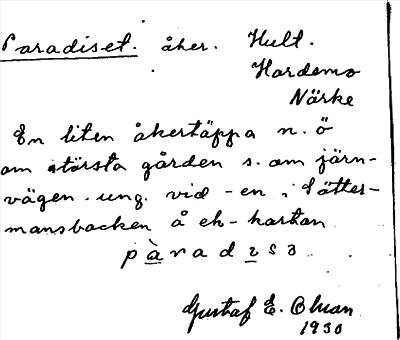 Paradiset. åker. Hult.
Hardemo
Närke
En liten åkertäppa n. ö
om största gården s. om järn-
vägen. ung. vid -en, i Sätter-
mansbacken å ek-kartan
pàradısə
Gustaf E. Ohman
1930